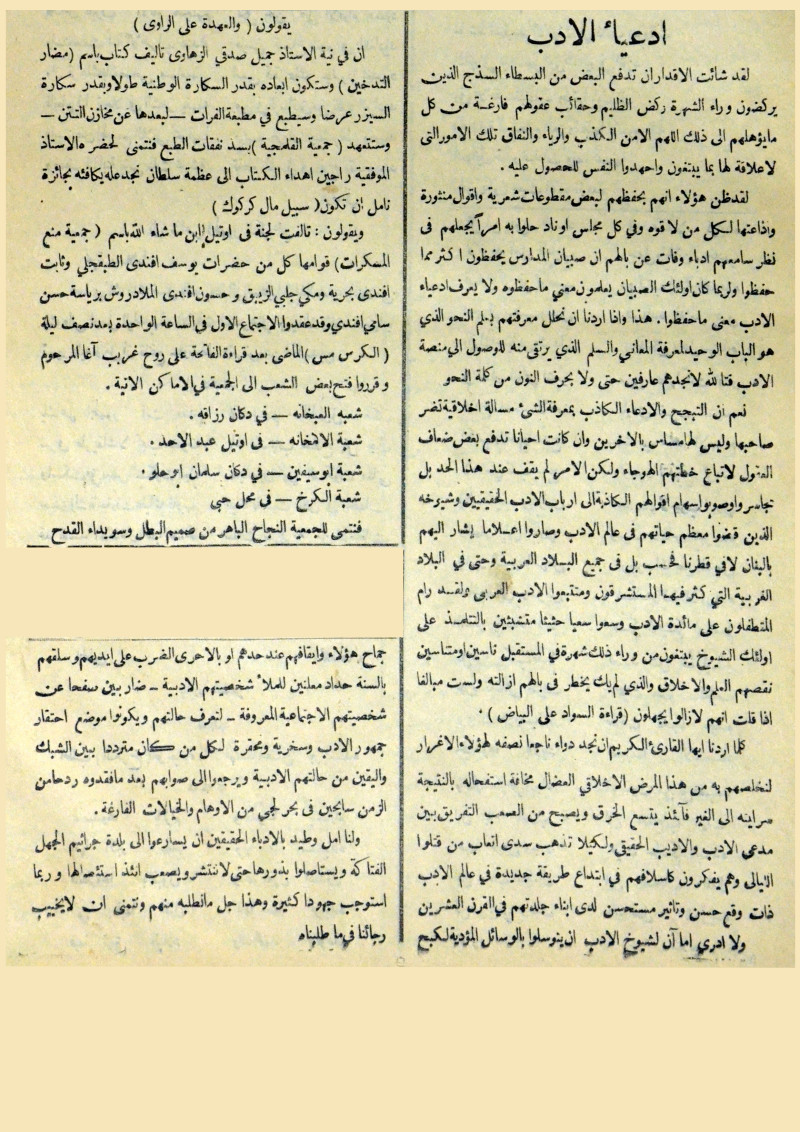 ادعياء الادب
لقد شائت الاقدار ان تدفع البعض من البسطاء السذج الذين
يركضون وراء الشهرة ركض الظليم وحقائب عقولهم فارغة من كل
مايؤهلهم الى ذلك اللهم الا من الكذب والرياء والنفاق تلك الامورالتى
لاعلاقة لها بما يبتغون واجهدوا النفس للحصول عليه .
لقدظن هؤلاء انهم بحفظهم لبعض مقطوعات شعرية واقوال منثورة
واذاعتها لكل من لاقوه وفي كل مجلس او ناد حلوا به امراً يجعلهم فى
نظر سامعهم ادباء وفات عن بالهم ان صبيان المدارس يحفظون اكثر مما
حفظوا ولربما كان اولئك الصبيان يعلمون معني ماحفظوه ولا يعرف ادعياء
الادب معنى ماحفظوا . هذا واذا اردنا ان نحلل معرفتهم بعلم النحو الذي
هو الباب الوحيد لمعرفة المعاني والسلم الذي يرتقى منه للوصول الى منصة
الادب فتا لله لانجدهم عارفين حتى ولا بحرف النون من كلمة النحو
نعم ان التبجح والادعاء الكاذب بمعرفة الشئ مسالة اخلاقية تضر
صاحبها وليس لهامساس بالاخرين وان كانت احيانا تدفع بعض ضعاف
العقول لاتباع خطتهم الهوجاء ولكن الامر لم يقف عند هذا الحد بل
تجاسر واوصوبواسهام اقوالهم الكاذبة الى ارباب الادب الحقيقيين وشيوخه
الذين قضوا معظم حياتهم فى عالم الادب وصاروا اعلاما يشار اليهم
بالبنان لافي قطرنا فحسب بل فى جميع البلاد العربية وحتى في البلاد
الغربية التي كثر فيها المستشرقون ومتتبعوا الادب العربى ولقد رام
المتطفلون على مائدة الادب وسعوا سعيا حثيثا متشبثين بالتلمذ على
اولئك الشيوخ يبتغون من وراء ذلك شهرة في المستقبل ناسين اومتناسين
نقصهم العلم والاخلاق والذي لم يك يخطر فى بالهم ازالته ولست مبالغا
اذا قلت انهم لازالوا يجهلون (قراءة السواد على البياض ) .
كلما اردنا ايها القارئ الكريم ان نجد دواء ناجعا نصفه لهؤلاء الاغرار
لنخلصهم به من هذا المرض الاخلاقي العضال مخافة استفحاله بالنتيجة
سرايته الى الغير فآنئذ يتسع الخرق ويصبح من الصعب التفريق بين
مدعي الادب والاديب الحقيقي ولكيلا تذهب سدى اتعاب من قتلوا
الليالى وهم يفكرون كاسلافهم في ابتداع طريقة جديدة في عالم الادب
ذات وقع حسن وتاثير مستحسن لدى ابناء جلدتهم في القرن العشرين
ولا ادري اما آن لشيوخ الادب ان يتوسلوا بالوسائل المؤدية لكبح
يقولون ( والعهدة على الراوى )
ان في نية الاستاذ جميل صدقي الزهاوى تاليف كتاب باسم (مضار
التدخين ) وستكون ابعاده بقدر السكارة الوطنية طولا وبقدر سكارة
السيزر عرضا وسيطبع في مطبعة الفرات — لبعدها عن مخازن التتن —
وستتعهد ( جمعية القلمجية ) بسد نفقات الطبع فنتمنى لحضره الاستاذ
الموفقية راجين اهداء الكتاب الى عظمة سلطان نجد عله يكافئه بجائزة
نامل ان تكون ( سبيل مال كركوك )
ويقولون : تالفت لجنة فى اوتيل ابن ما شاء الله باسم ( جمعية منع
المسكرات ) قوامها كل من حضرات يوسف افندى الطبقجلي وثابت
افندى بحرية ومكي جلبي الزيبق وحسون افندى الملادروش برياسة حسن
سامي افندي وقد عقدوا الاجتماع الاول في الساعة الواحدة بعد نصف ليلة
( الكرس مس ) الماضى بعد قراءة الفاتحة على روح غريب آغا المرحوم
وقرروا فتح بعض الشعب الى الجمعية في الاماكن الاتية .
شعبه العبخانه — في دكان رزاقه .
شعبة الامخانه — فى اوتيل عبد الاحد .
شعبة ابوسيفين — في دكان سلمان ابو حلو .
شعبة الكرخ — فى محل حبي
فنتمى للجمعية النجاح الباهر من صميم البطل وسويداء القدح
جماح هؤلاء وايقافهم عند حدهم او بالاحرى الضرب على ايديهم وسلقهم
بالسنة حداد معلنين للملأ شخصيتهم الادبية — ضاربين صفحا عن
شخصيتهم الاجتماعية المعروفة — لتعرف حالتهم ويكونوا موضع احتقار
جمهور الادب وسخرية ومحقرة لكل من كان مترددا بين الشك
واليقين من حالتهم الادبية ويرجعوا الى صوابهم بعد مافقدوه ردحا من
الزمن سابحين فى بحر لجي من الاوهام والخيالات الفارغة .
ولنا امل وطيد بالادباء الحقيقين ان يسارعوا الى بلدة جراثيم الجهل
الفتاكة ويستاصلوا بذورها حتى لاتنتشر ويصعب انئذ استئصالها وربما
استوجب جهودا كثيرة وهذا جل مانطلبه منهم ونتمنى ان لايخيب
رجائنا في ما طلبناه